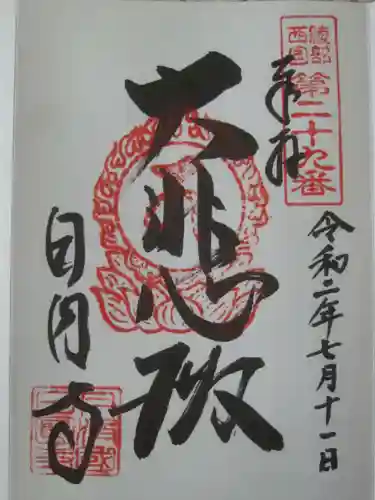 綾部
西国
第二十九番
奉拝
令和二年七月十一日
大悲殿
日円寺